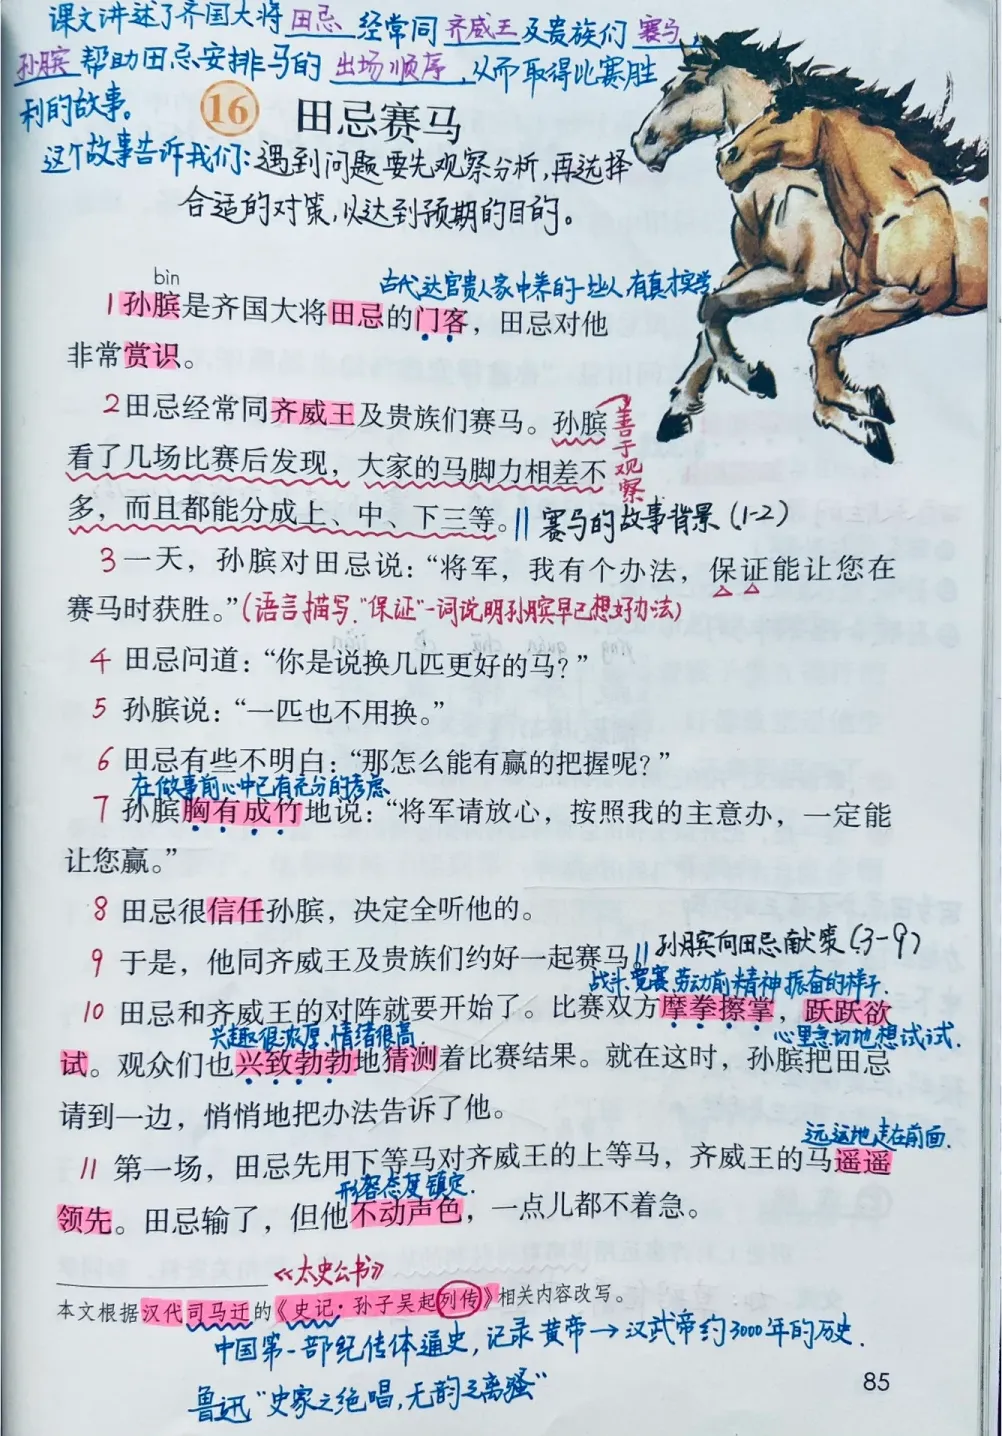 课文讲述了齐国大将 田忌 经常同 齐威王 及贵族们 赛马,
孙膑 帮助田忌安排马的 出场顺序 ,从而取得比赛胜
利的故事。
16 田忌赛马
这个故事告诉我们:遇到问题要先观察分析,再选择
合适的对策,以达到预期的目的。
bìn
古代达官贵人家中养的一些人,有真才实学
1 孙膑是齐国大将田忌的门客,田忌对他
非常赏识。
2 田忌经常同齐威王及贵族们赛马。孙膑
善于观察
看了几场比赛后发现,大家的马脚力相差不
多,而且都能分成上、中、下三等。‖ 赛马的故事背景(1-2)
3 一天,孙膑对田忌说:“将军,我有个办法,保证能让您在
赛马时获胜。”(语言描写.“保证”一词说明孙膑早已想好办法)
4 田忌问道:“你是说换几匹更好的马?”
5 孙膑说:“一匹也不用换。”
6 田忌有些不明白:“那怎么能有赢的把握呢?”
在做事前心中已有充分的考虑
7 孙膑胸有成竹地说:“将军请放心,按照我的主意办,一定能
让您赢。”
8 田忌很信任孙膑,决定全听他的。
9 于是,他同齐威王及贵族们约好一起赛马。‖ 孙膑向田忌献策(3-9)
战斗、竞赛、劳动前精神振奋的样子.
10 田忌和齐威王的对阵就要开始了。比赛双方摩拳擦掌,跃跃欲
兴趣很浓厚,情绪很高. 心里急切地想试试.
试。观众们也兴致勃勃地猜测着比赛结果。就在这时,孙膑把田忌
请到一边,悄悄地把办法告诉了他。
远远地走在前面.
11 第一场,田忌先用下等马对齐威王的上等马,齐威王的马遥遥
形容态度镇定.
领先。田忌输了,但他不动声色,一点儿都不着急。
《太史公书》
本文根据汉代司马迁的《史记·孙子吴起列传》相关内容改写。
中国第一部纪传体通史,记录黄帝→汉武帝约3000年的历史.
鲁迅“史家之绝唱,无韵之离骚”
85